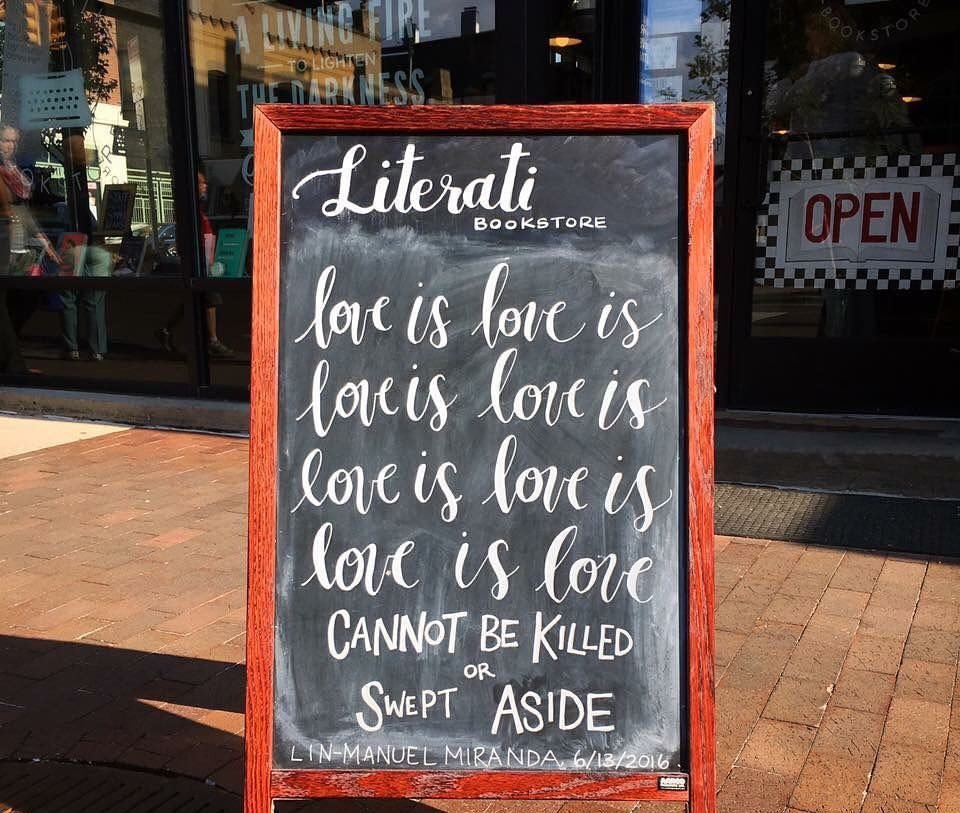 A LIVING FIRE
TO LIGHTEN
THE DARKNESS
BOOKSTORE
OPEN
Literati
BOOKSTORE
love is love is
love is love is
love is love is
love is love
CANNOT BE KILLED
OR
SWEPT ASIDE
LIN-MANUEL MIRANDA, 6/13/2016